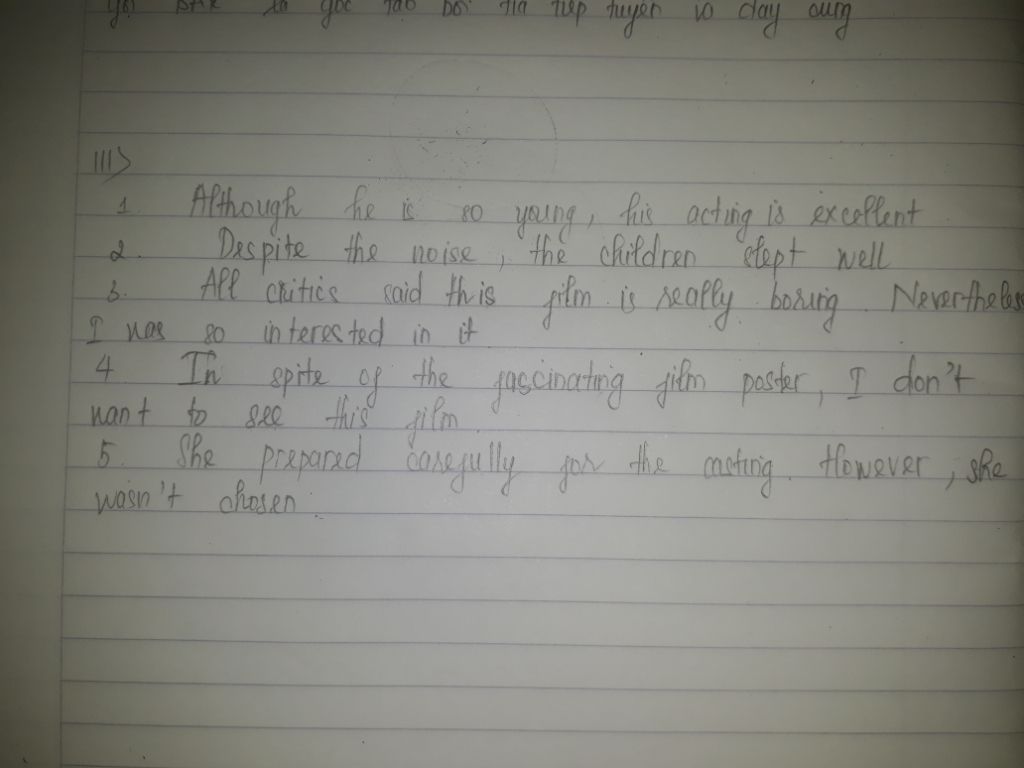 là góc tạo bởi tia tiếp tuyến và dây cung
III>
1. Although he is so young, his acting is excellent
2. Despite the noise, the children slept well
3. All critics said this film is really boring. Nevertheless
I was so interested in it
4 In spite of the fascinating film poster, I don't
want to see this film
5. She prepared carefully for the acting. However, she
wasn't chosen.